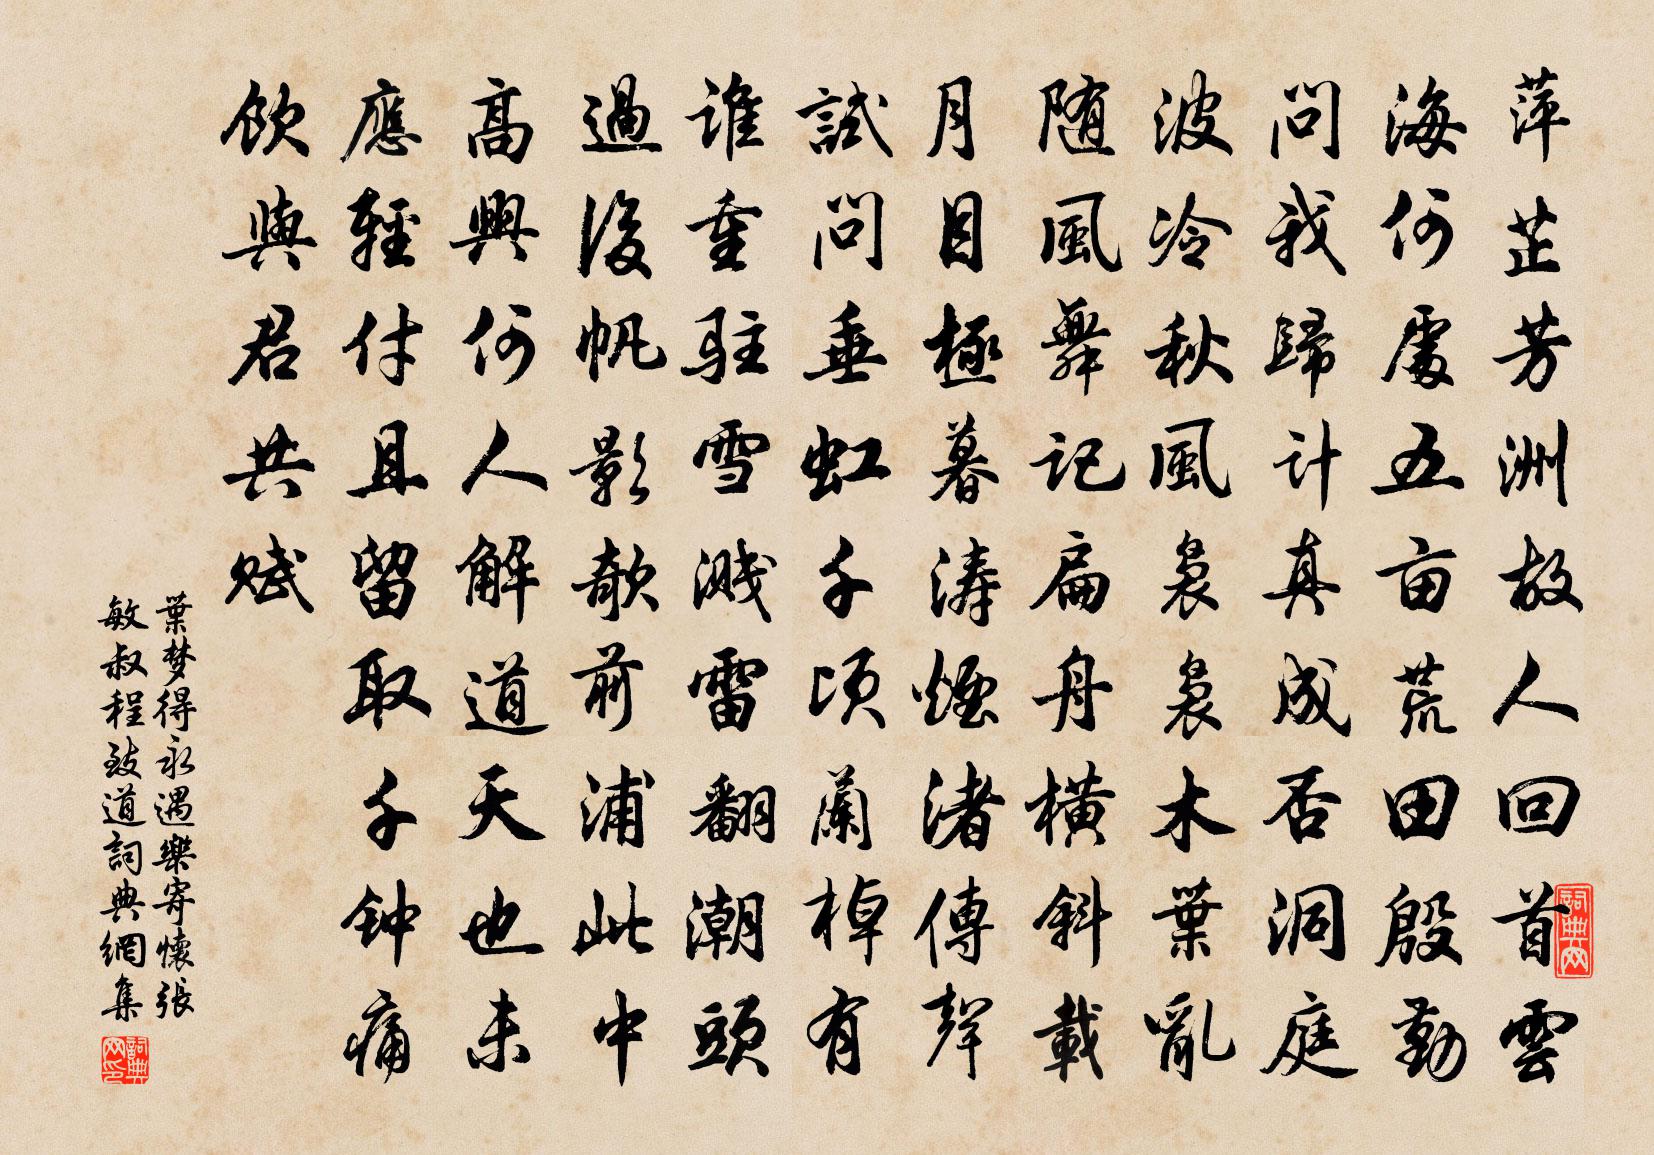 萍芷芳洲故人回首雲
海何處五亩荒田殷勤
問我歸計真成否洞庭
波冷秋風袅袅木葉亂
随風舞記扁舟横斜載
月目極暮涛煙渚傳聲
試問垂虹千顷蘭棹有
谁重駐雪溅雷翻潮頭
過後帆影欹前浦此中
高興何人解道天也未
應輕付且留取千钟痛
飲與君共赋
葉梦得永遇樂寄懷張
敏叔程致道詞典網集
詞典网
詞典网印